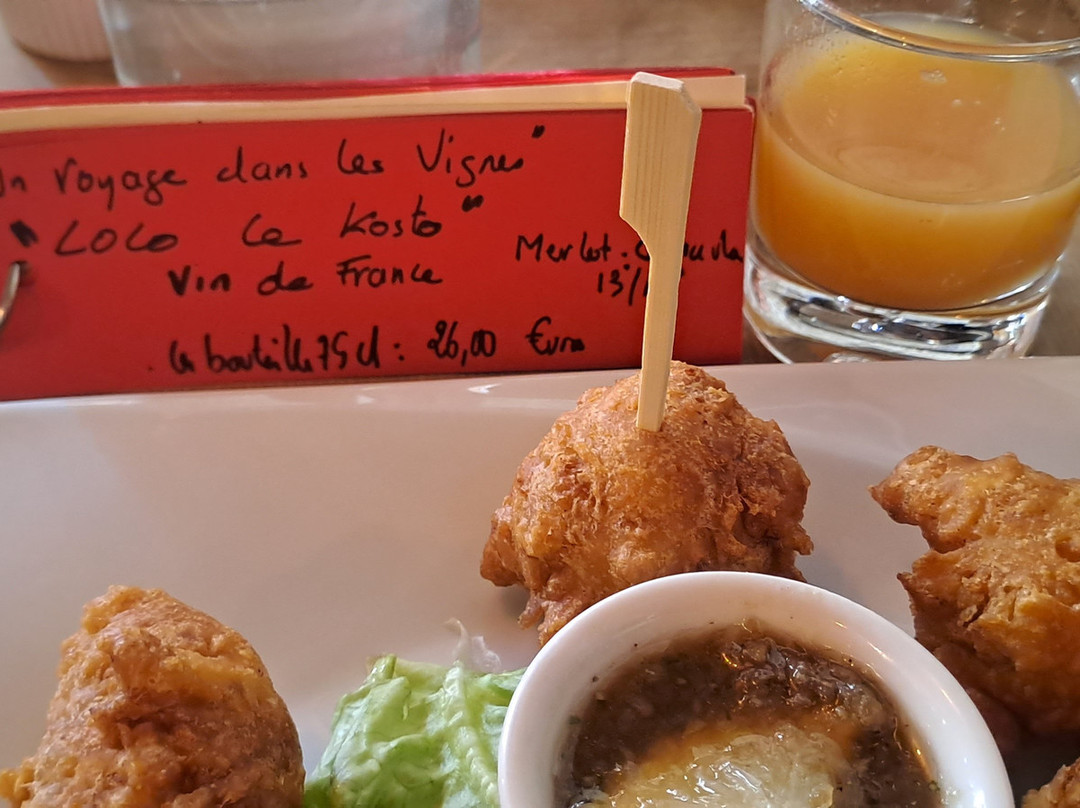 Un voyage dans les Vignes"
"LOCO Le Kosto"
Vin de France
Merlot.
13°/
La bouteille 75 cl : 26,00 Euros